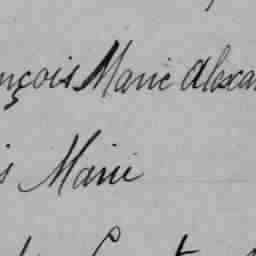 nçois Marie Alexa
s Marie